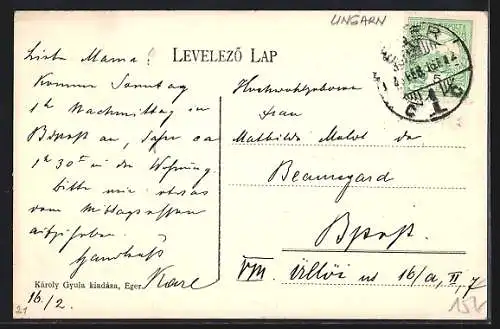 UNGARN
LEVELEZŐ LAP
Liebe Mama!
Komme Sonntag
1h Nachmittag in
Bdpest an, daher ca
1h 30 in der Wohnung.
Bitte mir etwas
vom Mittagessen
aufzuheben.
Handkuß
Karl
16/2.
Hochwohlgeboren
Frau
Mathilde de
Beauregard
Bpest.
VIII. Üllői út 16/a, II, 7
Károly Gyula kiadása, Eger.
21